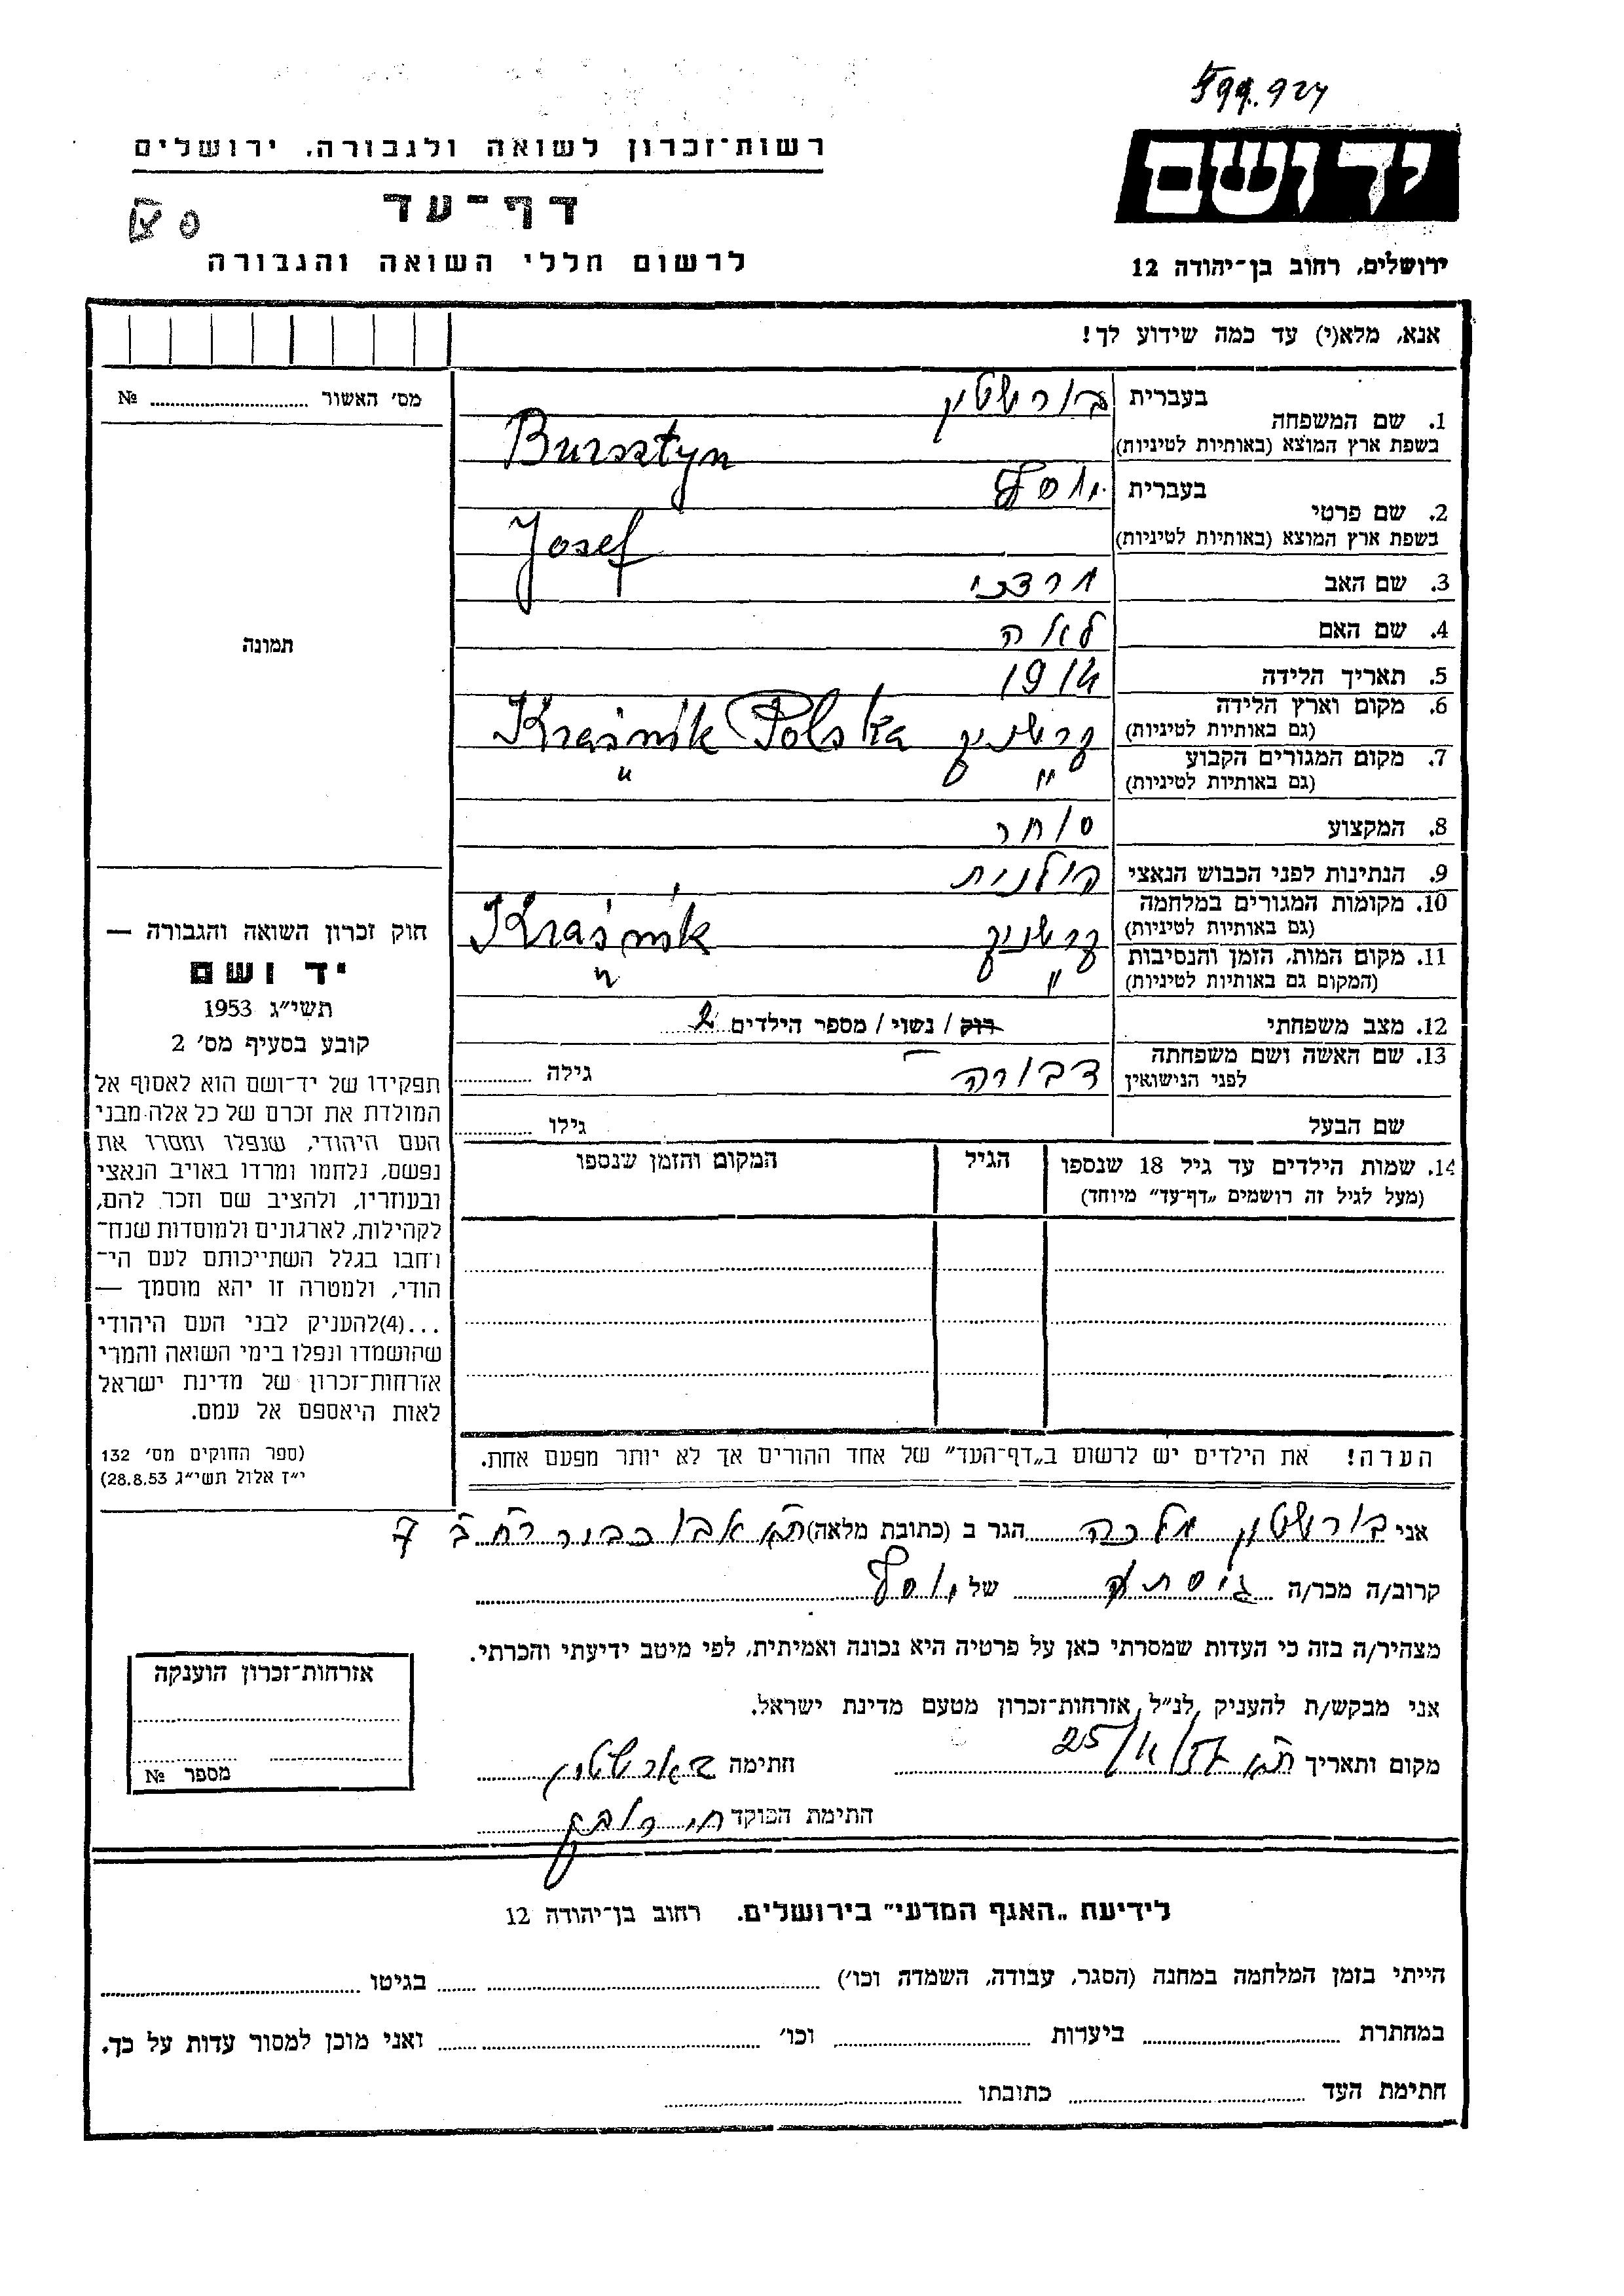 599.924
ידושם
ירושלים, רחוב בן־יהודה 12
רשות־זכרון לשואה ולגבורה, ירושלים
דף־עד
לרשום חללי השואה והגבורה
אנא, מלא(י) עד כמה שידוע לך!
מס׳ האשור ........ №
תמונה
1. שם המשפחה בעברית בורשטין
בשפת ארץ המוצא (באותיות לטיניות) Bursztyn
2. שם פרטי בעברית יוסף
בשפת ארץ המוצא (באותיות לטיניות) Josef
3. שם האב מרדכי
4. שם האם לאה
5. תאריך הלידה 1914
6. מקום וארץ הלידה (גם באותיות לטיניות) קרשניק Kraśnik Polska
7. מקום המגורים הקבוע (גם באותיות לטיניות) " "
8. המקצוע סוחר
9. הנתינות לפני הכבוש הנאצי פולנית
10. מקומות המגורים במלחמה (גם באותיות לטיניות) קרשניק Kraśnik
11. מקום המות, הזמן והנסיבות (המקום גם באותיות לטיניות) " "
12. מצב משפחתי רווק / נשוי / מספר הילדים 2
13. שם האשה ושם משפחתה לפני הנישואין דבורה גילה
שם הבעל גילו
14. שמות הילדים עד גיל 18 שנספו הגיל המקום והזמן שנספו
(מעל לגיל זה רושמים „דף־עד" מיוחד)
הערה! את הילדים יש לרשום ב„דף־העד" של אחד ההורים אך לא יותר מפעם אחת.
חוק זכרון השואה והגבורה —
יד ושם
תשי״ג 1953
קובע בסעיף מס׳ 2
תפקידו של יד־ושם הוא לאסוף אל
המולדת את זכרם של כל אלה מבני
העם היהודי, שנפלו ומסרו את
נפשם, נלחמו ומרדו באויב הנאצי
ובעוזריו, ולהציב שם וזכר להם,
לקהילות, לארגונים ולמוסדות שנח־
רחבו בגלל השתייכותם לעם הי־
הודי, ולמטרה זו יהא מוסמך —
...(4) להעניק לבני העם היהודי
שהושמדו ונפלו בימי השואה והמרי
אזרחות־זכרון של מדינת ישראל
לאות היאספם אל עמם.
(ספר החוקים מס׳ 132
י״ז אלול תשי״ג 28.8.53)
אני בורשטין מלכה הגר ב (כתובת מלאה) ת״א אבו כבור
קרוב/ה מכר/ה גיסתו של יוסף
מצהיר/ה בזה כי העדות שמסרתי כאן על פרטיה היא נכונה ואמיתית, לפי מיטב ידיעתי והכרתי.
אני מבקש/ת להעניק לנ״ל אזרחות־זכרון מטעם מדינת ישראל.
מקום ותאריך ת״א חתימה בורשטין
חתימת הפוקד
אזרחות־זכרון הוענקה
מספר №
לידיעת „האגף המדעי" בירושלים, רחוב בן־יהודה 12
הייתי בזמן המלחמה במחנה (הסגר, עבודה, השמדה וכו׳) ........ בגיטו ........
במחתרת ........ ביערות ........ וכו׳ ........ ואני מוכן למסור עדות על כך.
חתימת העד ........ כתובתו ........